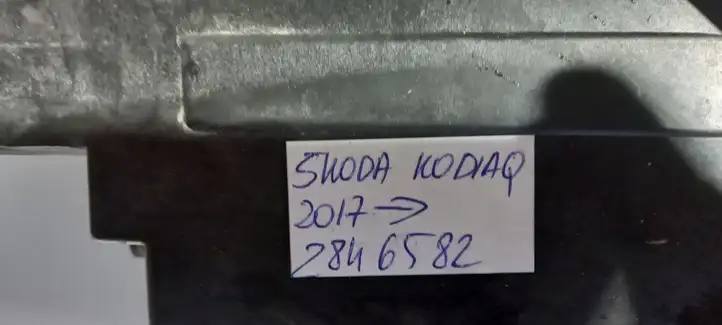 SKODA KODIAQ
2017 →
2846582